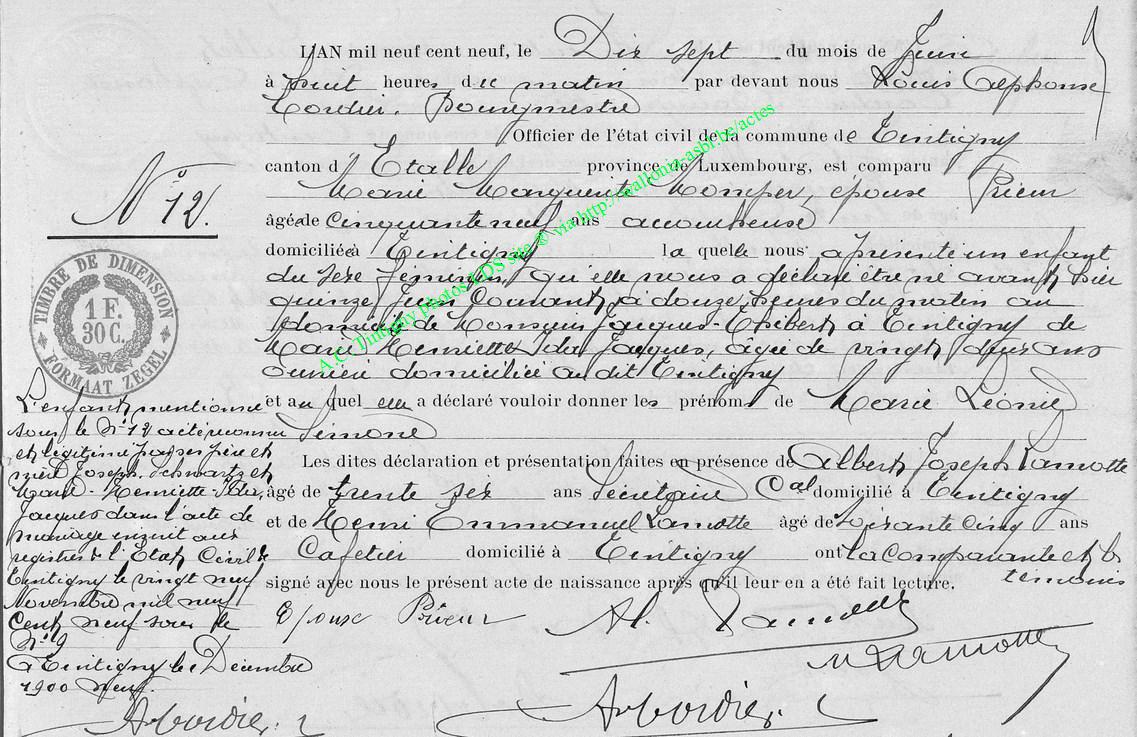 L'AN mil neuf cent neuf, le Dix sept du mois de Juin
à huit heures du matin par devant nous Louis Alphonse
Cordier, Bourgmestre
Officier de l'état civil de la commune de Tintigny
canton d'Etalle province de Luxembourg, est comparu
Marie Marguerite Momper, épouse Prieur
âgée de cinquante neuf ans accoucheuse
domiciliée à Tintigny la quelle nous a présenté un enfant
du sexe féminin qu'elle nous a déclaré être né avant hier
quinze Juin Courant, à douze heures du matin au
domicile de Monsieur Jacques-Thibert à Tintigny de
Marie Henriette Ida Jacques, âgée de vingt deux ans
domiciliée au dit Tintigny
et au quel elle a déclaré vouloir donner les prénoms de Marie Léonie
Simone
Les dites déclaration et présentation faites en présence de Albert Joseph Lamotte
âgé de trente six ans Secrétaire Cal domicilié à Tintigny
et de Henri Emmanuel Lamotte âgé de soixante cinq ans
Cafetier domicilié à Tintigny ont la comparante et les
témoins
signé avec nous le présent acte de naissance après qu'il leur en a été fait lecture.
Epouse Prieur
Al. Lamotte
Lamotte
A. Cordier
No 12.
TIMBRE DE DIMENSION
1 F.
30 C.
FORMAAT ZEGEL
L'enfant mentionné
sous le No 12 a été reconnu
et légitimé par ses père et
mère Joseph Schwartz et
Marie-Henriette-Ida
Jacques dans l'acte de
mariage inscrit aux
registres de l'Etat Civil de
Tintigny le vingt neuf
Novembre mil neuf
Cent neuf sous le
No 9
à Tintigny le Décembre
1900 neuf.
A. Cordier
A.C. Tintigny photos LDS site © via http://wallonia-asbl.be/actes